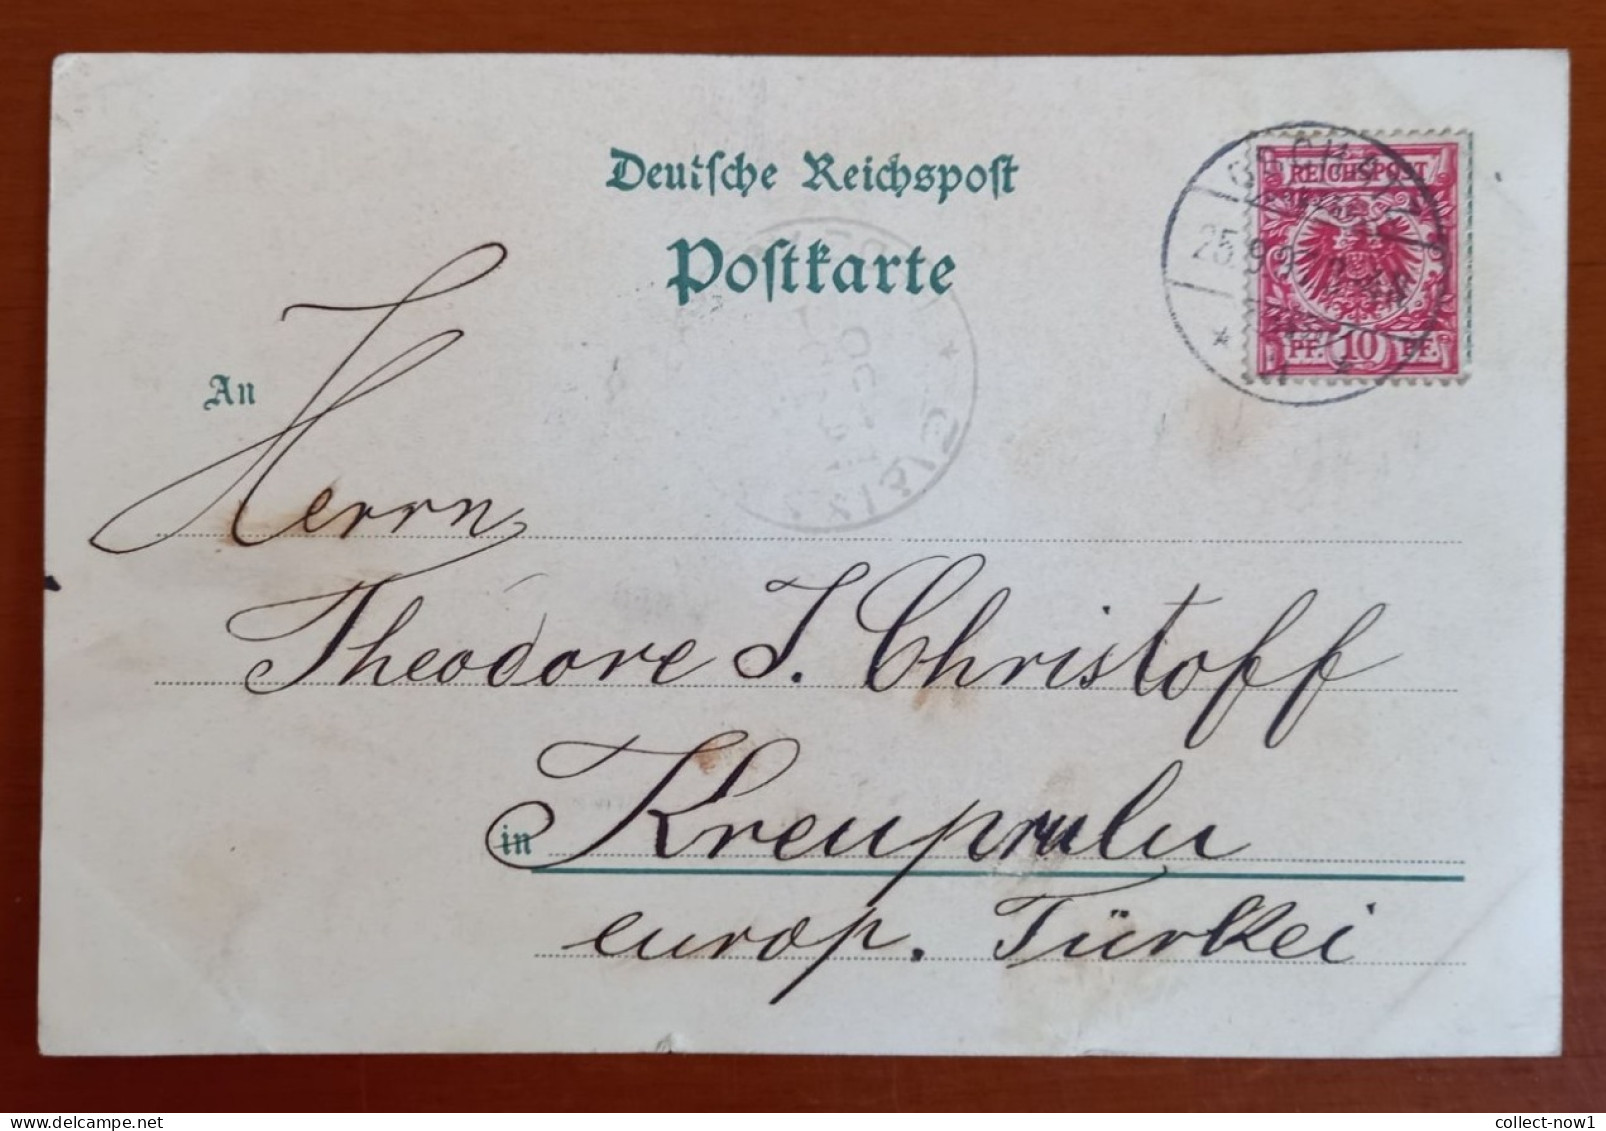 Deutsche Reichspost
Postkarte
REICHSPOST
PF. 10 PF.
An
Herrn
Theodore J. Christoff
in Kreuprulu
europ. Türkei
collect-now1